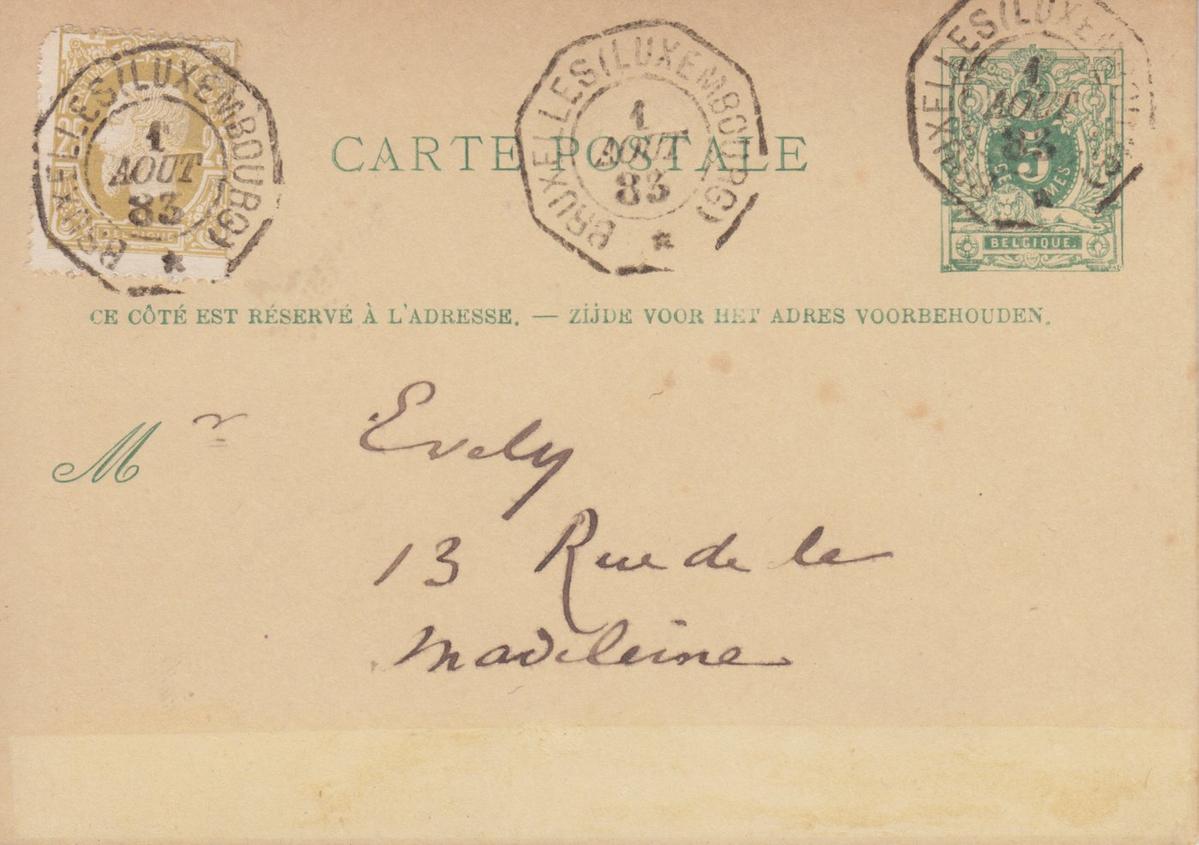 BRUXELLES (LUXEMBOURG)
1
AOUT
83
BRUXELLES (LUXEMBOURG)
1
AOUT
83
BRUXELLES (LUXEMBOURG)
1
AOUT
83
CARTE POSTALE
5
BELGIQUE.
CE CÔTÉ EST RÉSERVÉ À L'ADRESSE. — ZIJDE VOOR HET ADRES VOORBEHOUDEN.
Mr Evely
13 Rue de la
Madeleine